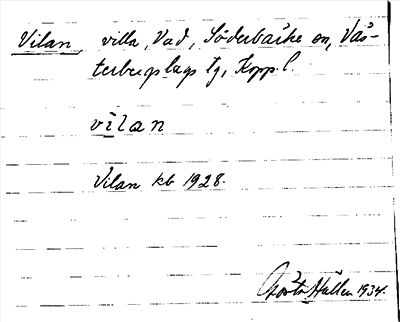 Vilan, villa, Vad, Söderbärke sn, Väs-
terbergslags tg, Kopp. l.
vilan
Vilan kb 1928.
Gösta Hallén 1934.